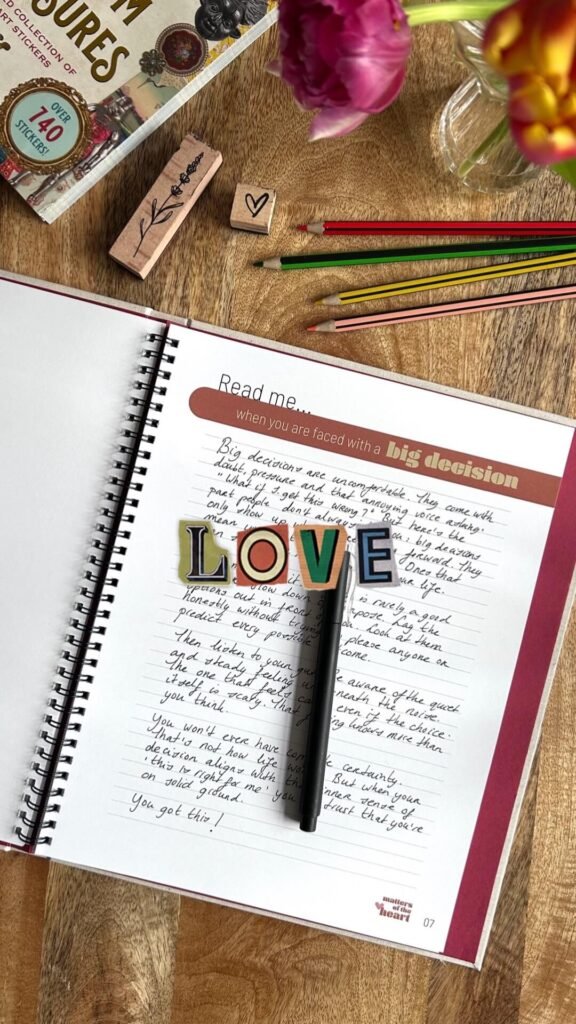 M
SURES
D COLLECTION OF
RT STICKERS
OVER
740
STICKERS!
Read me...
when you are faced with a big decision
Big decisions are uncomfortable. They come with
doubt, pressure and that annoying voice asking:
"What if I get this wrong?" But here's the
part people don't always you: big decisions
only show up wh
mean forward. They
Ones that
ur life.
LOVE
slow down is rarely a good
options out in front of Lay the
honestly without trying you look at them
predict every possible please anyone or
come.
Then listen to your gu Be aware of the quiet
and steady feeling neath the noise.
The one that feels ca even if the choice
itself is scary. That ing knows more than
you think.
You won't ever have com certainty.
That's not how life wo But when your
decision aligns with th inner sense of
'this is right for me' you trust that you're
on solid ground.
You got this!
matters
of the
heart
07